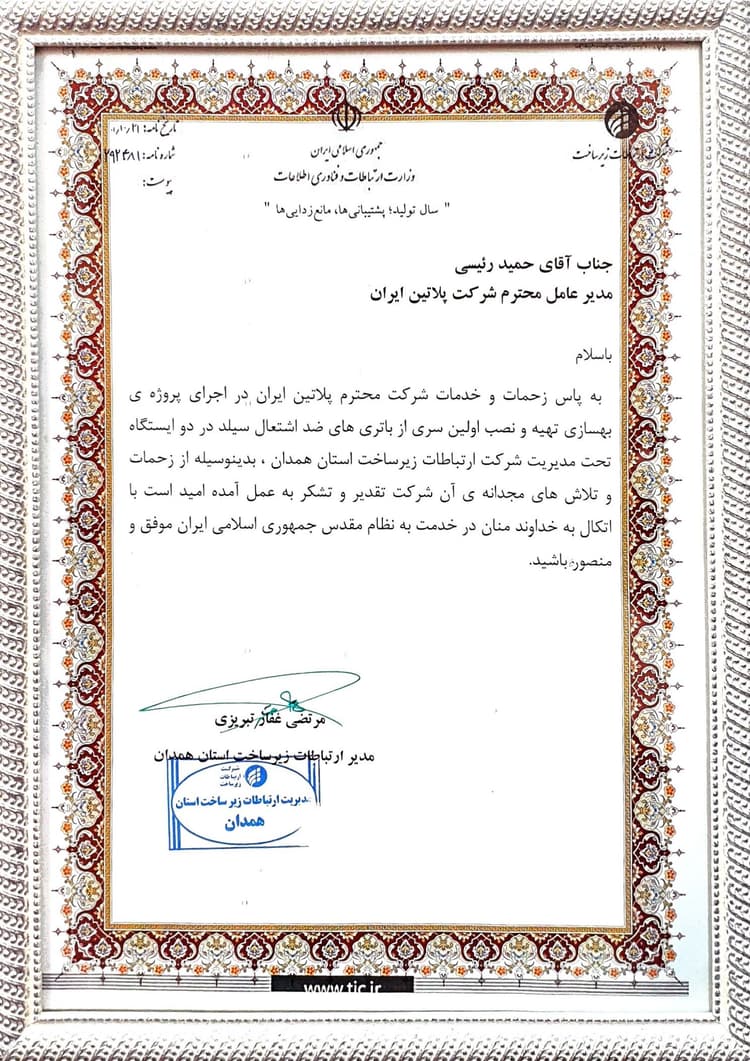 جمهوری اسلامی ایران
وزارت ارتباطات و فناوری اطلاعات
شرکت ارتباطات زیرساخت
تاریخ نامه:
شماره نامه:
پیوست:
" سال تولید؛ پشتیبانی‌ها، مانع‌زدایی‌ها "
جناب آقای حمید رئیسی
مدیر عامل محترم شرکت پلاتین ایران
باسلام
به پاس زحمات و خدمات شرکت محترم پلاتین ایران در اجرای پروژه ی
بهسازی تهیه و نصب اولین سری از باتری های ضد اشتعال سیلد در دو ایستگاه
تحت مدیریت شرکت ارتباطات زیرساخت استان همدان ، بدینوسیله از زحمات
و تلاش های مجدانه ی آن شرکت تقدیر و تشکر به عمل آمده امید است با
اتکال به خداوند منان در خدمت به نظام مقدس جمهوری اسلامی ایران موفق و
منصور باشید.
مرتضی غفار تبریزی
مدیر ارتباطات زیرساخت استان همدان
شرکت
ارتباطات
زیرساخت
مدیریت ارتباطات زیر ساخت استان
همدان
www.tic.ir